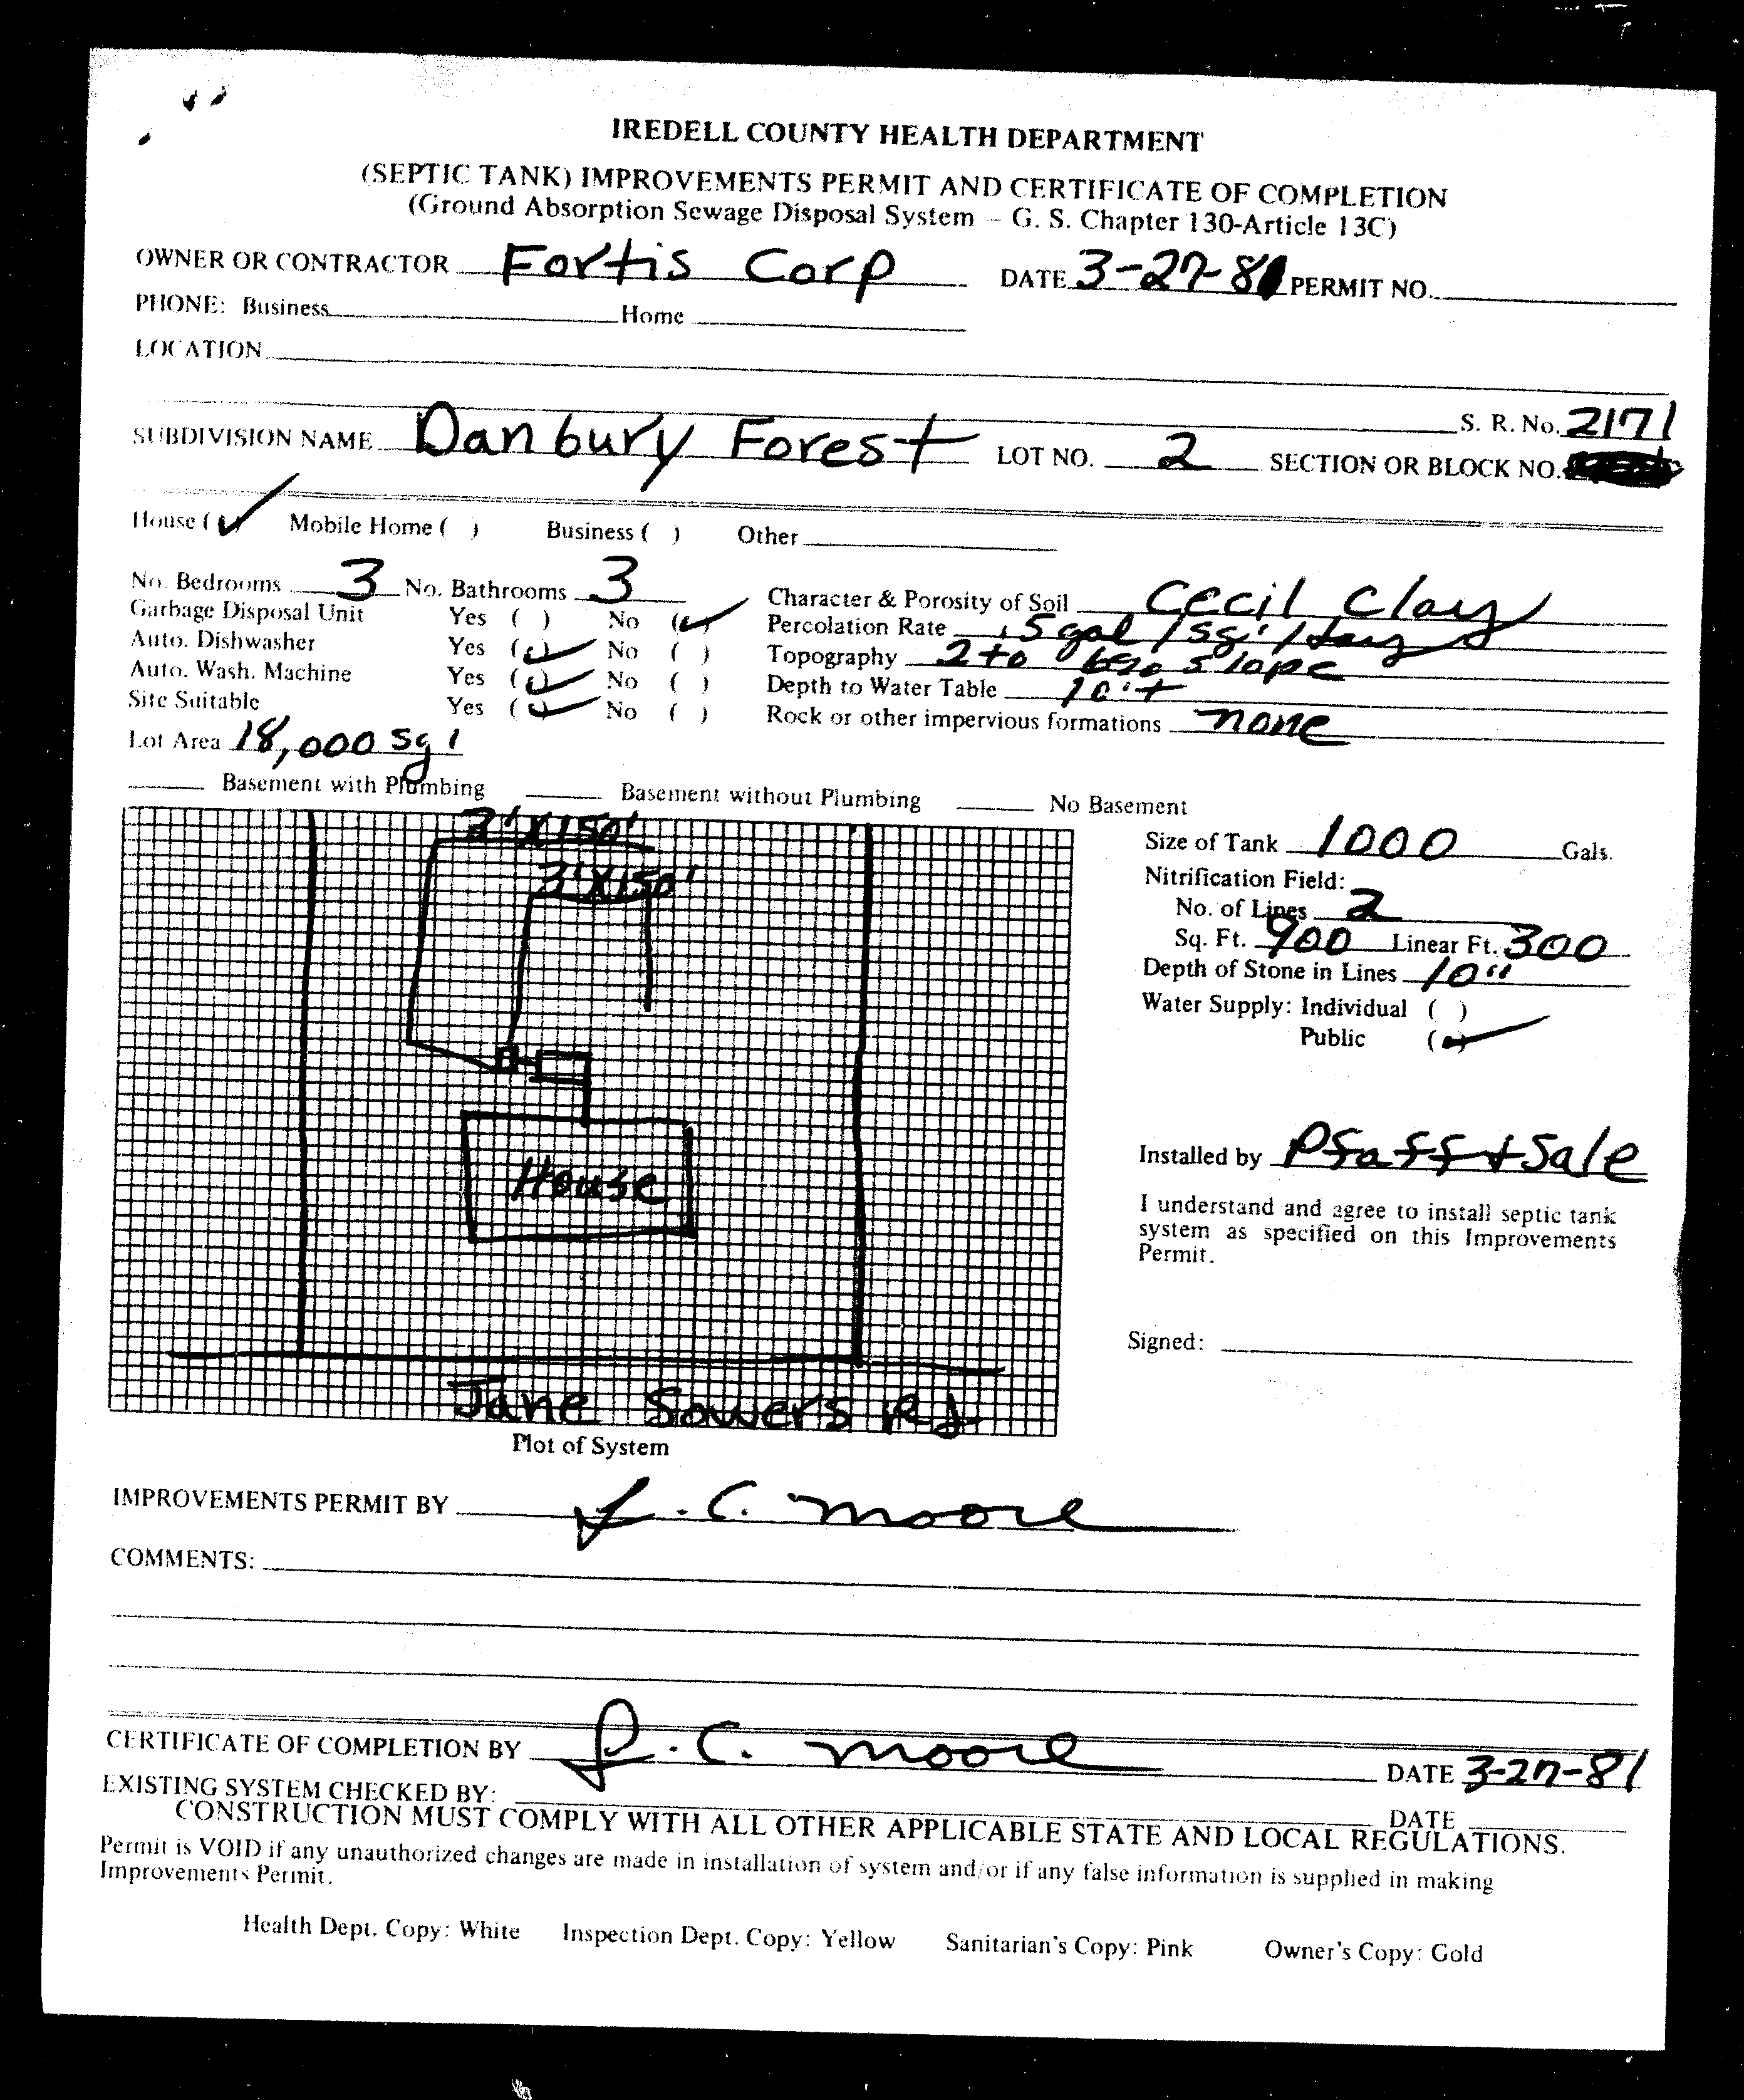 IREDELL COUNTY HEALTH DEPARTMENT
(SEPTIC TANK) IMPROVEMENTS PERMIT AND CERTIFICATE OF COMPLETION
(Ground Absorption Sewage Disposal System – G. S. Chapter 130-Article 13C)
OWNER OR CONTRACTOR Fortis Corp DATE 3-27-81 PERMIT NO.
PHONE: Business Home
LOCATION
S. R. No. 2171
SUBDIVISION NAME Danbury Forest LOT NO. 2 SECTION OR BLOCK NO.
House (✓) Mobile Home ( ) Business ( ) Other
No. Bedrooms 3 No. Bathrooms 3
Garbage Disposal Unit Yes ( ) No (✓)
Auto. Dishwasher Yes (✓) No ( )
Auto. Wash. Machine Yes (✓) No ( )
Site Suitable Yes (✓) No ( )
Lot Area 18,000 sq '
Character & Porosity of Soil Cecil Clay
Percolation Rate .5 gal / sq ' / day
Topography 2 to 6% slope
Depth to Water Table 10'+
Rock or other impervious formations none
Basement with Plumbing Basement without Plumbing No Basement
3'X150'
3'X150'
House
Jane Sowers Rd
Plot of System
Size of Tank 1000 Gals.
Nitrification Field:
No. of Lines 2
Sq. Ft. 900 Linear Ft. 300
Depth of Stone in Lines 10"
Water Supply: Individual ( )
Public (✓)
Installed by Pfaff + Sale
I understand and agree to install septic tank
system as specified on this Improvements
Permit.
Signed:
IMPROVEMENTS PERMIT BY J. C. Moore
COMMENTS:
CERTIFICATE OF COMPLETION BY J. C. Moore DATE 3-27-81
EXISTING SYSTEM CHECKED BY: DATE
CONSTRUCTION MUST COMPLY WITH ALL OTHER APPLICABLE STATE AND LOCAL REGULATIONS.
Permit is VOID if any unauthorized changes are made in installation of system and/or if any false information is supplied in making
Improvements Permit.
Health Dept. Copy: White Inspection Dept. Copy: Yellow Sanitarian's Copy: Pink Owner's Copy: Gold